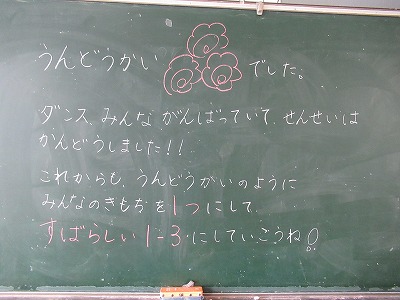 うんどうかい でした。
ダンス、みんな がんばっていて、せんせいは
かんどうしました!!
これからも、うんどうかいのように
みんなのきもちを1つにして、
すばらしい1-3にしていこうね!